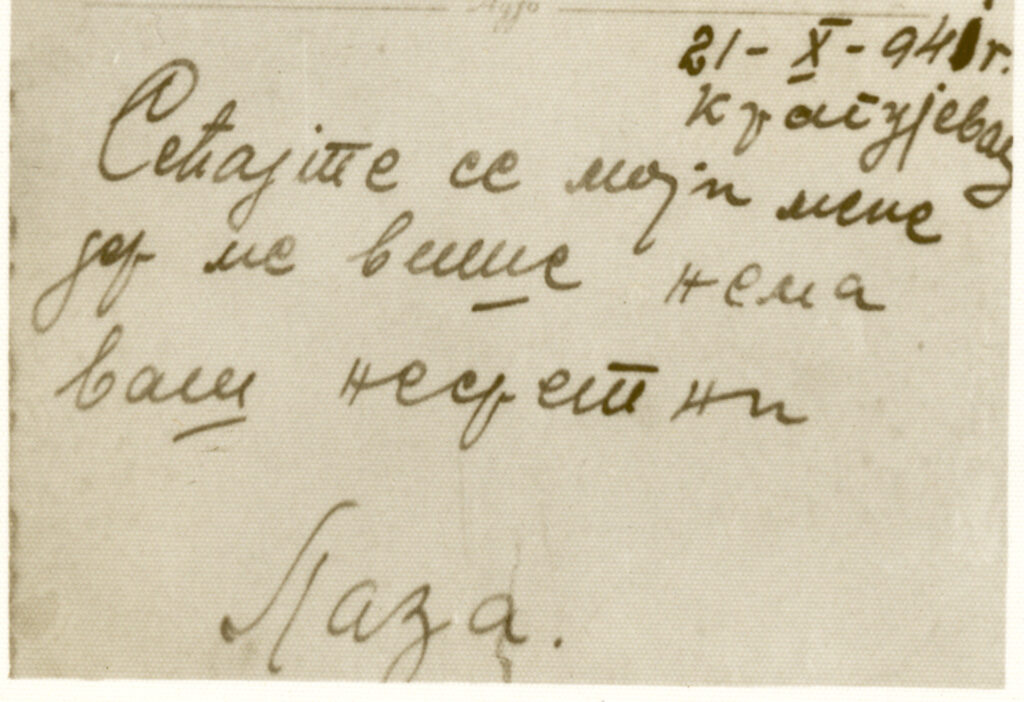 21-X-941г.
Крагујевац
Сећајте се моји мене
јер ме више нема
ваш несретни
Лаза.